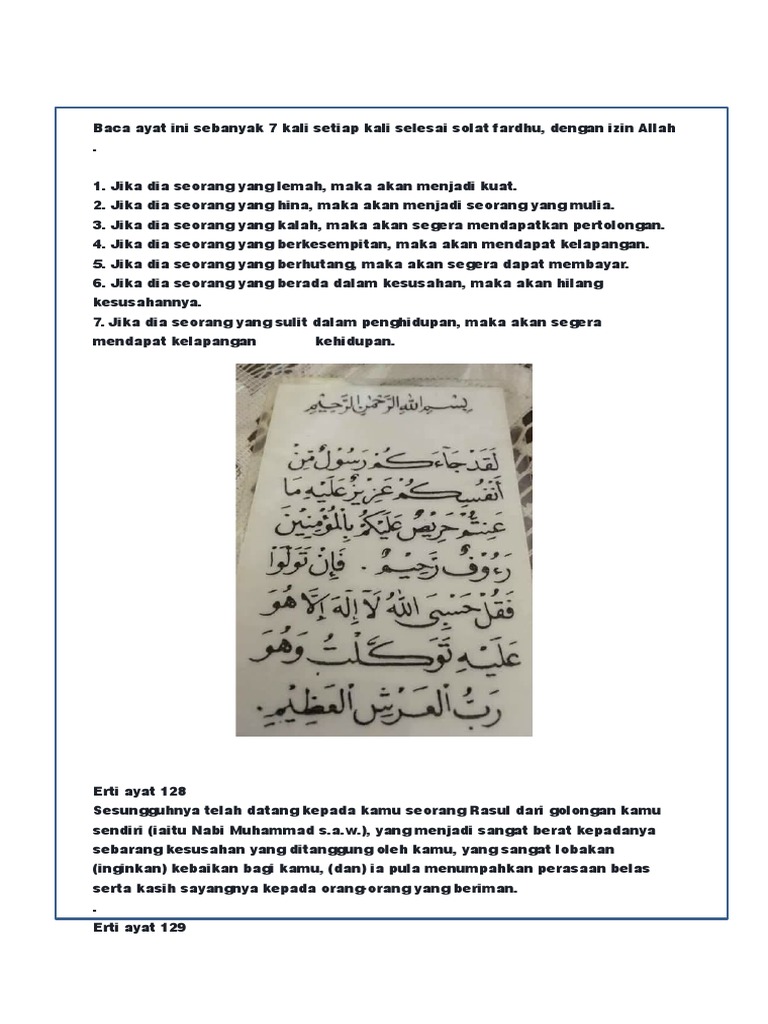 Baca ayat ini sebanyak 7 kali setiap kali selesai solat fardhu, dengan izin Allah
-
1. Jika dia seorang yang lemah, maka akan menjadi kuat.
2. Jika dia seorang yang hina, maka akan menjadi seorang yang mulia.
3. Jika dia seorang yang kalah, maka akan segera mendapatkan pertolongan.
4. Jika dia seorang yang berkesempitan, maka akan mendapat kelapangan.
5. Jika dia seorang yang berhutang, maka akan segera dapat membayar.
6. Jika dia seorang yang berada dalam kesusahan, maka akan hilang
kesusahannya.
7. Jika dia seorang yang sulit dalam penghidupan, maka akan segera
mendapat kelapangan kehidupan.
بِسْمِ اللهِ الرَّحْمٰنِ الرَّحِيْمِ
لَقَدْ جَآءَكُمْ رَسُوْلٌ مِّنْ
أَنْفُسِكُمْ عَزِيْزٌ عَلَيْهِ مَا
عَنِتُّمْ حَرِيْصٌ عَلَيْكُمْ بِالْمُؤْمِنِيْنَ
رَءُوْفٌ رَّحِيْمٌ . فَإِنْ تَوَلَّوْا
فَقُلْ حَسْبِيَ اللهُ لَآ إِلٰهَ إِلَّا هُوَ
عَلَيْهِ تَوَكَّلْتُ وَهُوَ
رَبُّ الْعَرْشِ الْعَظِيْمِ .
Erti ayat 128
Sesungguhnya telah datang kepada kamu seorang Rasul dari golongan kamu
sendiri (iaitu Nabi Muhammad s.a.w.), yang menjadi sangat berat kepadanya
sebarang kesusahan yang ditanggung oleh kamu, yang sangat lobakan
(inginkan) kebaikan bagi kamu, (dan) ia pula menumpahkan perasaan belas
serta kasih sayangnya kepada orang-orang yang beriman.
-
Erti ayat 129